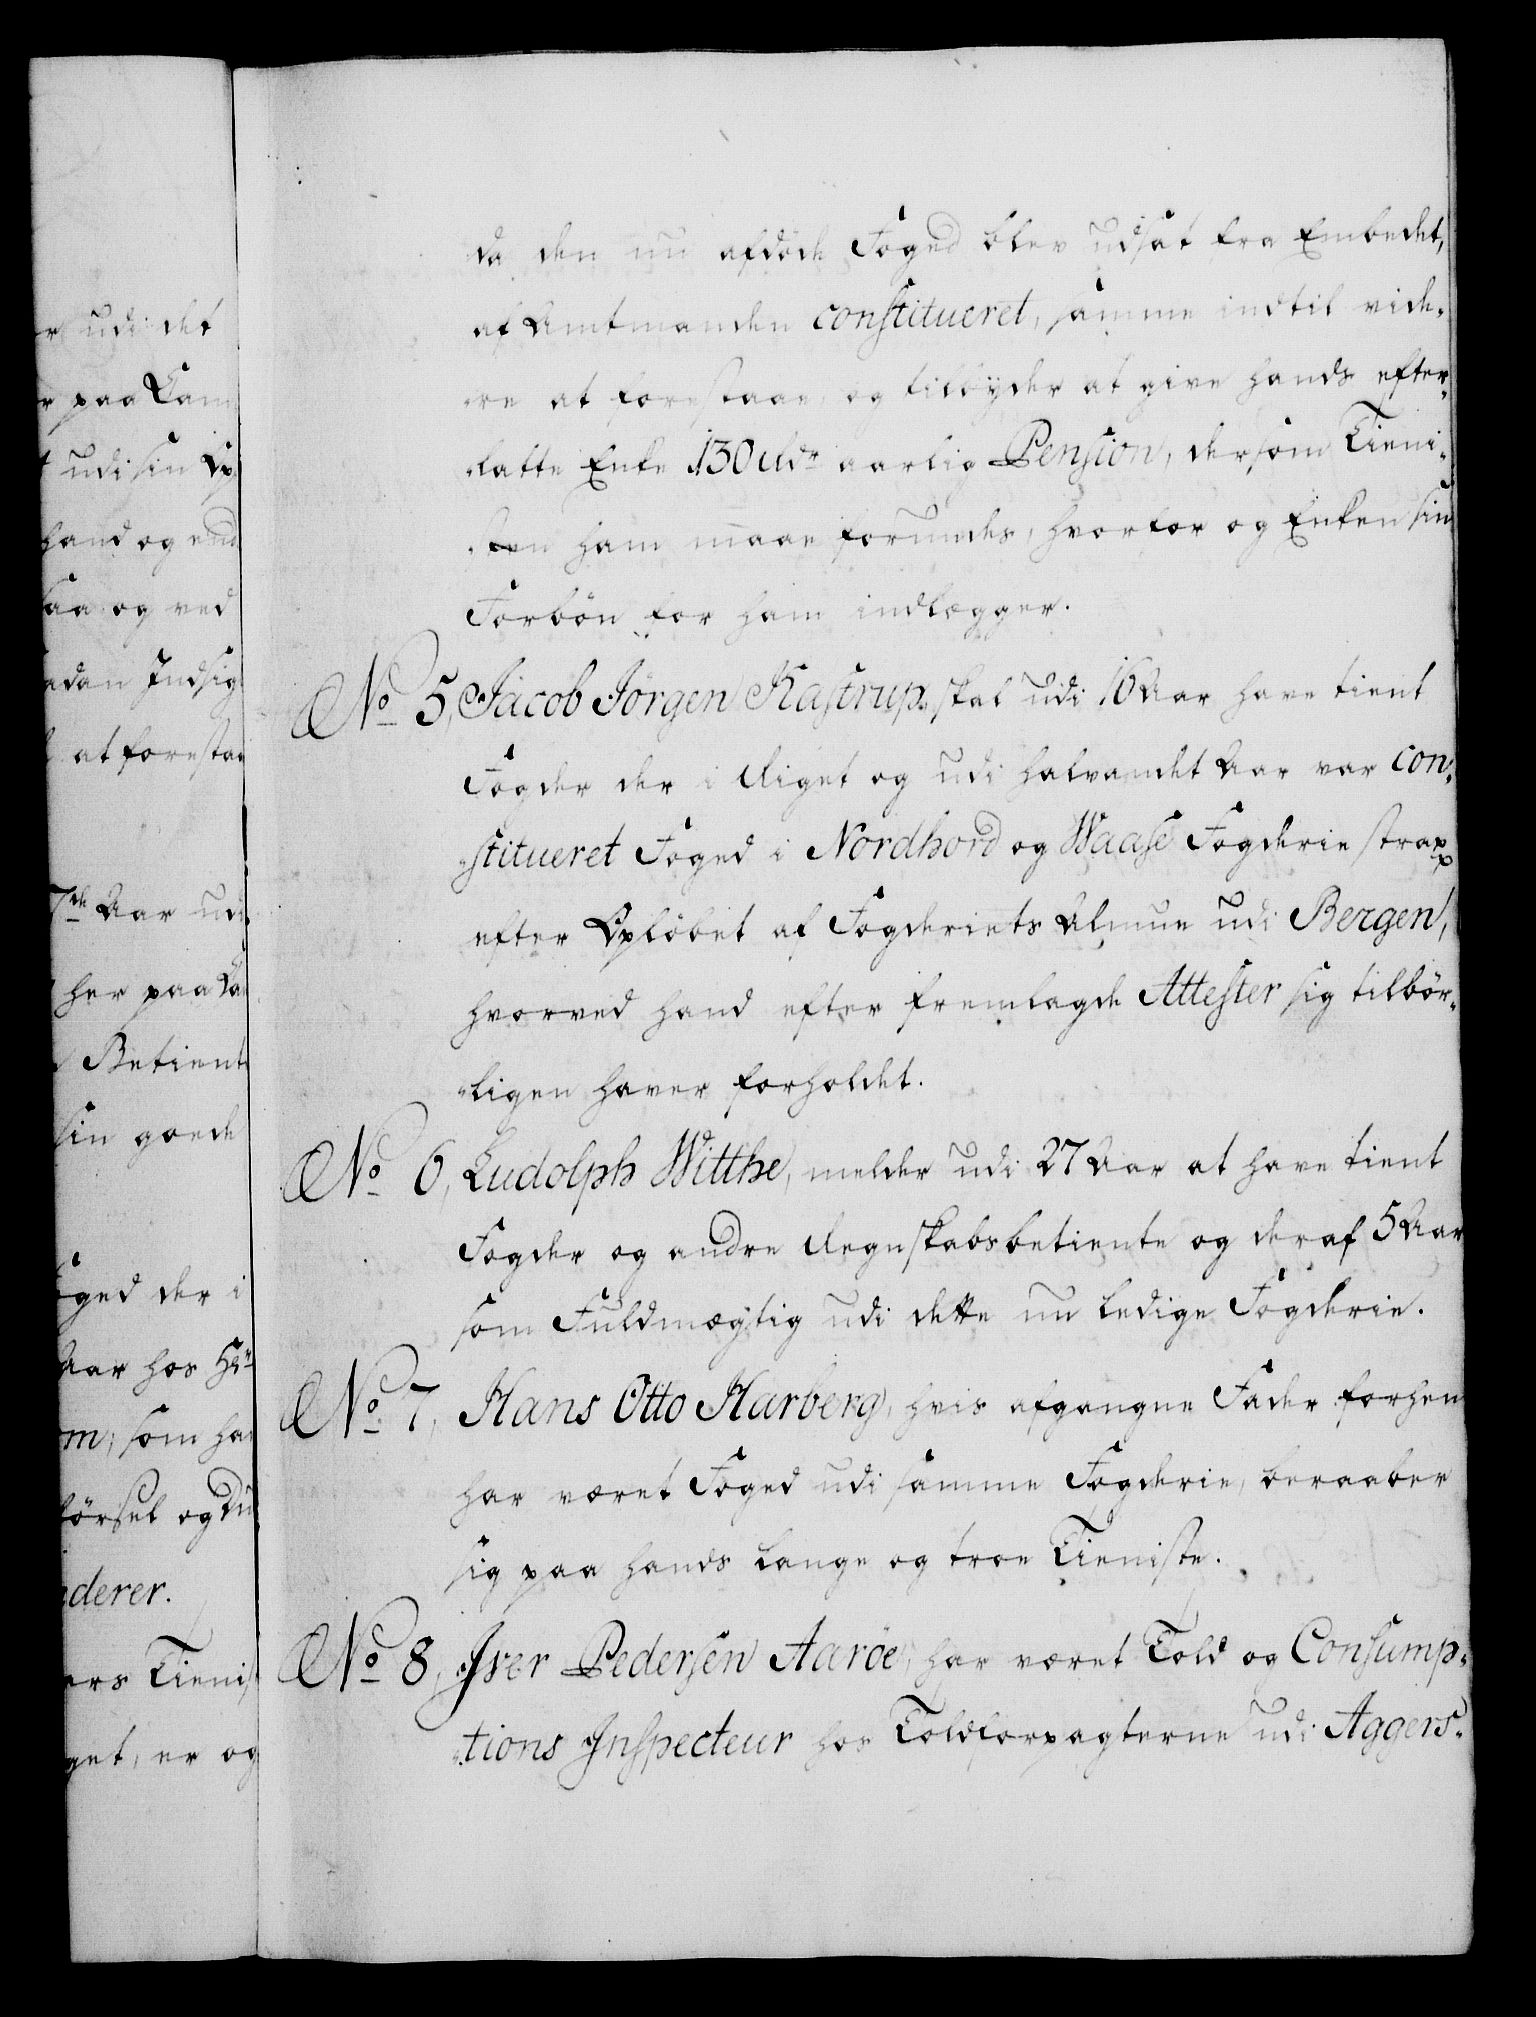 r udi det
r paa Cam
t udi sin Op
hand og end
saa og ved
adan Indsig
at foresta
7de Aar udi
her paa Ca
Betient
sin goede
oged der i
Aar hos Hr
m, som ha
försel og Du
nderer.
ers Tienis
get, er og
da den nu afdöde Foged blev udsat fra Embedet,
af Amtmanden constitueret, samme indtil vide-
-re at forestaae, og tilbyder at give hands efter-
-latte Enke 130 Rdr aarlig Pension, dersom Tieni-
-sten ham maae forundes, hvorfor og Enken sin
Forbön for ham indlægger.
No 5, Jacob Jörgen Kastrup, skal udi 16 Aar have tient
Fogder der i Riget og udi halvandet Aar var con-
-stitueret Foged i Nordhord og Waase Fogderie strax
efter Oplöbet af Fogderiets Almue udi Bergen,
hvorved hand efter fremlagde Attester sig tilbör-
-ligen haver forholdet.
No 6, Ludolph Witthe, melder udi 27 Aar at have tient
Fogder og andre Regnskabsbetiente og deraf 5 Aar
som Fuldmægtig udi dette nu ledige Fogderie.
No 7, Hans Otto Harberg, hvis afgangne Fader forhen
har været Foged udi samme Fogderie, beraaber
sig paa hands lange og troe Tieniste.
No 8, Iver Pedersen Aaröe, har været Told og Consump-
-tions Inspecteur hos Toldforpagterne udi Aggers-